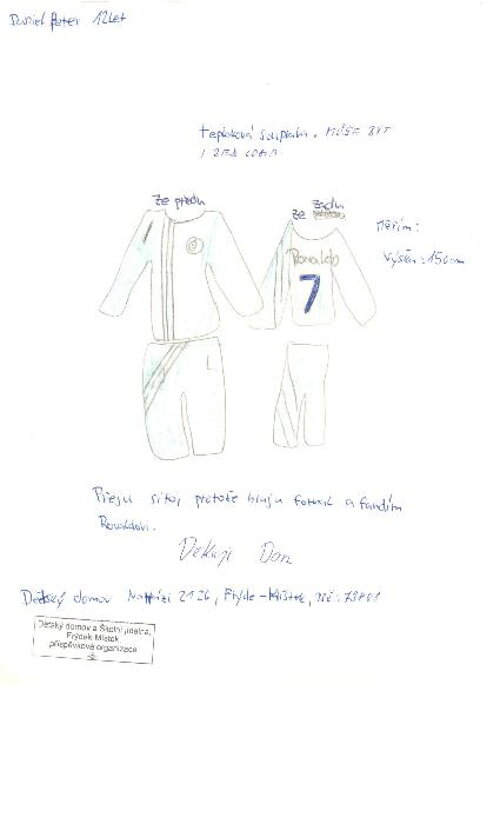 Daniel Peter 12 let
tepláková souprava. MŮŽE BÝT
I BEZ LOGA
ze předu
ze zadu
Měřím:
Výška: 150cm
Ronaldo
7
Přeju si to, protože hraju fotbal a fandím
Ronaldovi.
Děkuji Dan
Dětský domov Na Hrázi 2126, Frýdek-Místek,
Dětský domov a Školní jídelna,
Frýdek-Místek,
příspěvková organizace